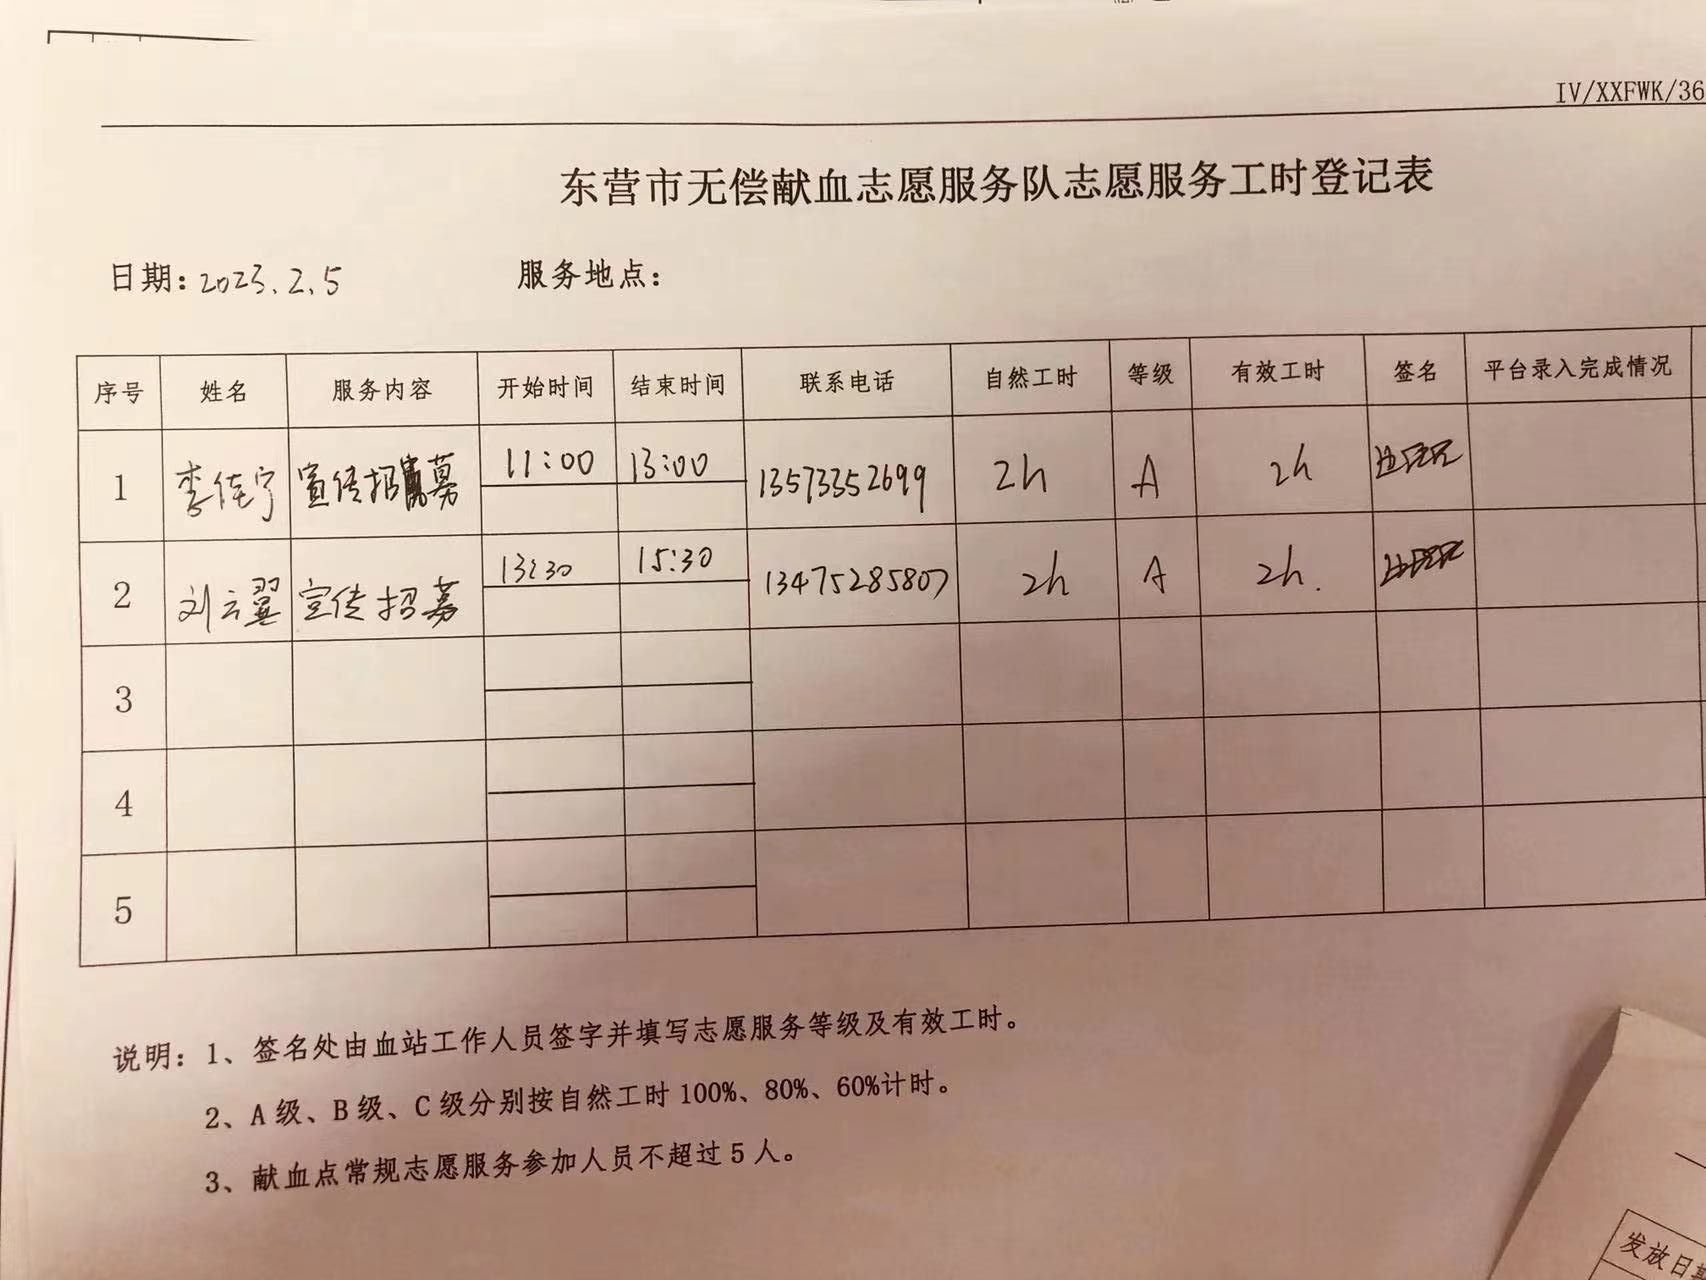 IV/XXFWK/36
东营市无偿献血志愿服务队志愿服务工时登记表
日期：2023.2.5 服务地点：
序号 姓名 服务内容 开始时间 结束时间 联系电话 自然工时 等级 有效工时 签名 平台录入完成情况
1 李佳宁 宣传招募 11:00 13:00 13573352699 2h A 2h
2 刘云翼 宣传招募 13:30 15:30 13475285807 2h A 2h.
3
4
5
说明：1、签名处由血站工作人员签字并填写志愿服务等级及有效工时。
2、A级、B级、C级分别按自然工时100%、80%、60%计时。
3、献血点常规志愿服务参加人员不超过5人。
发放日